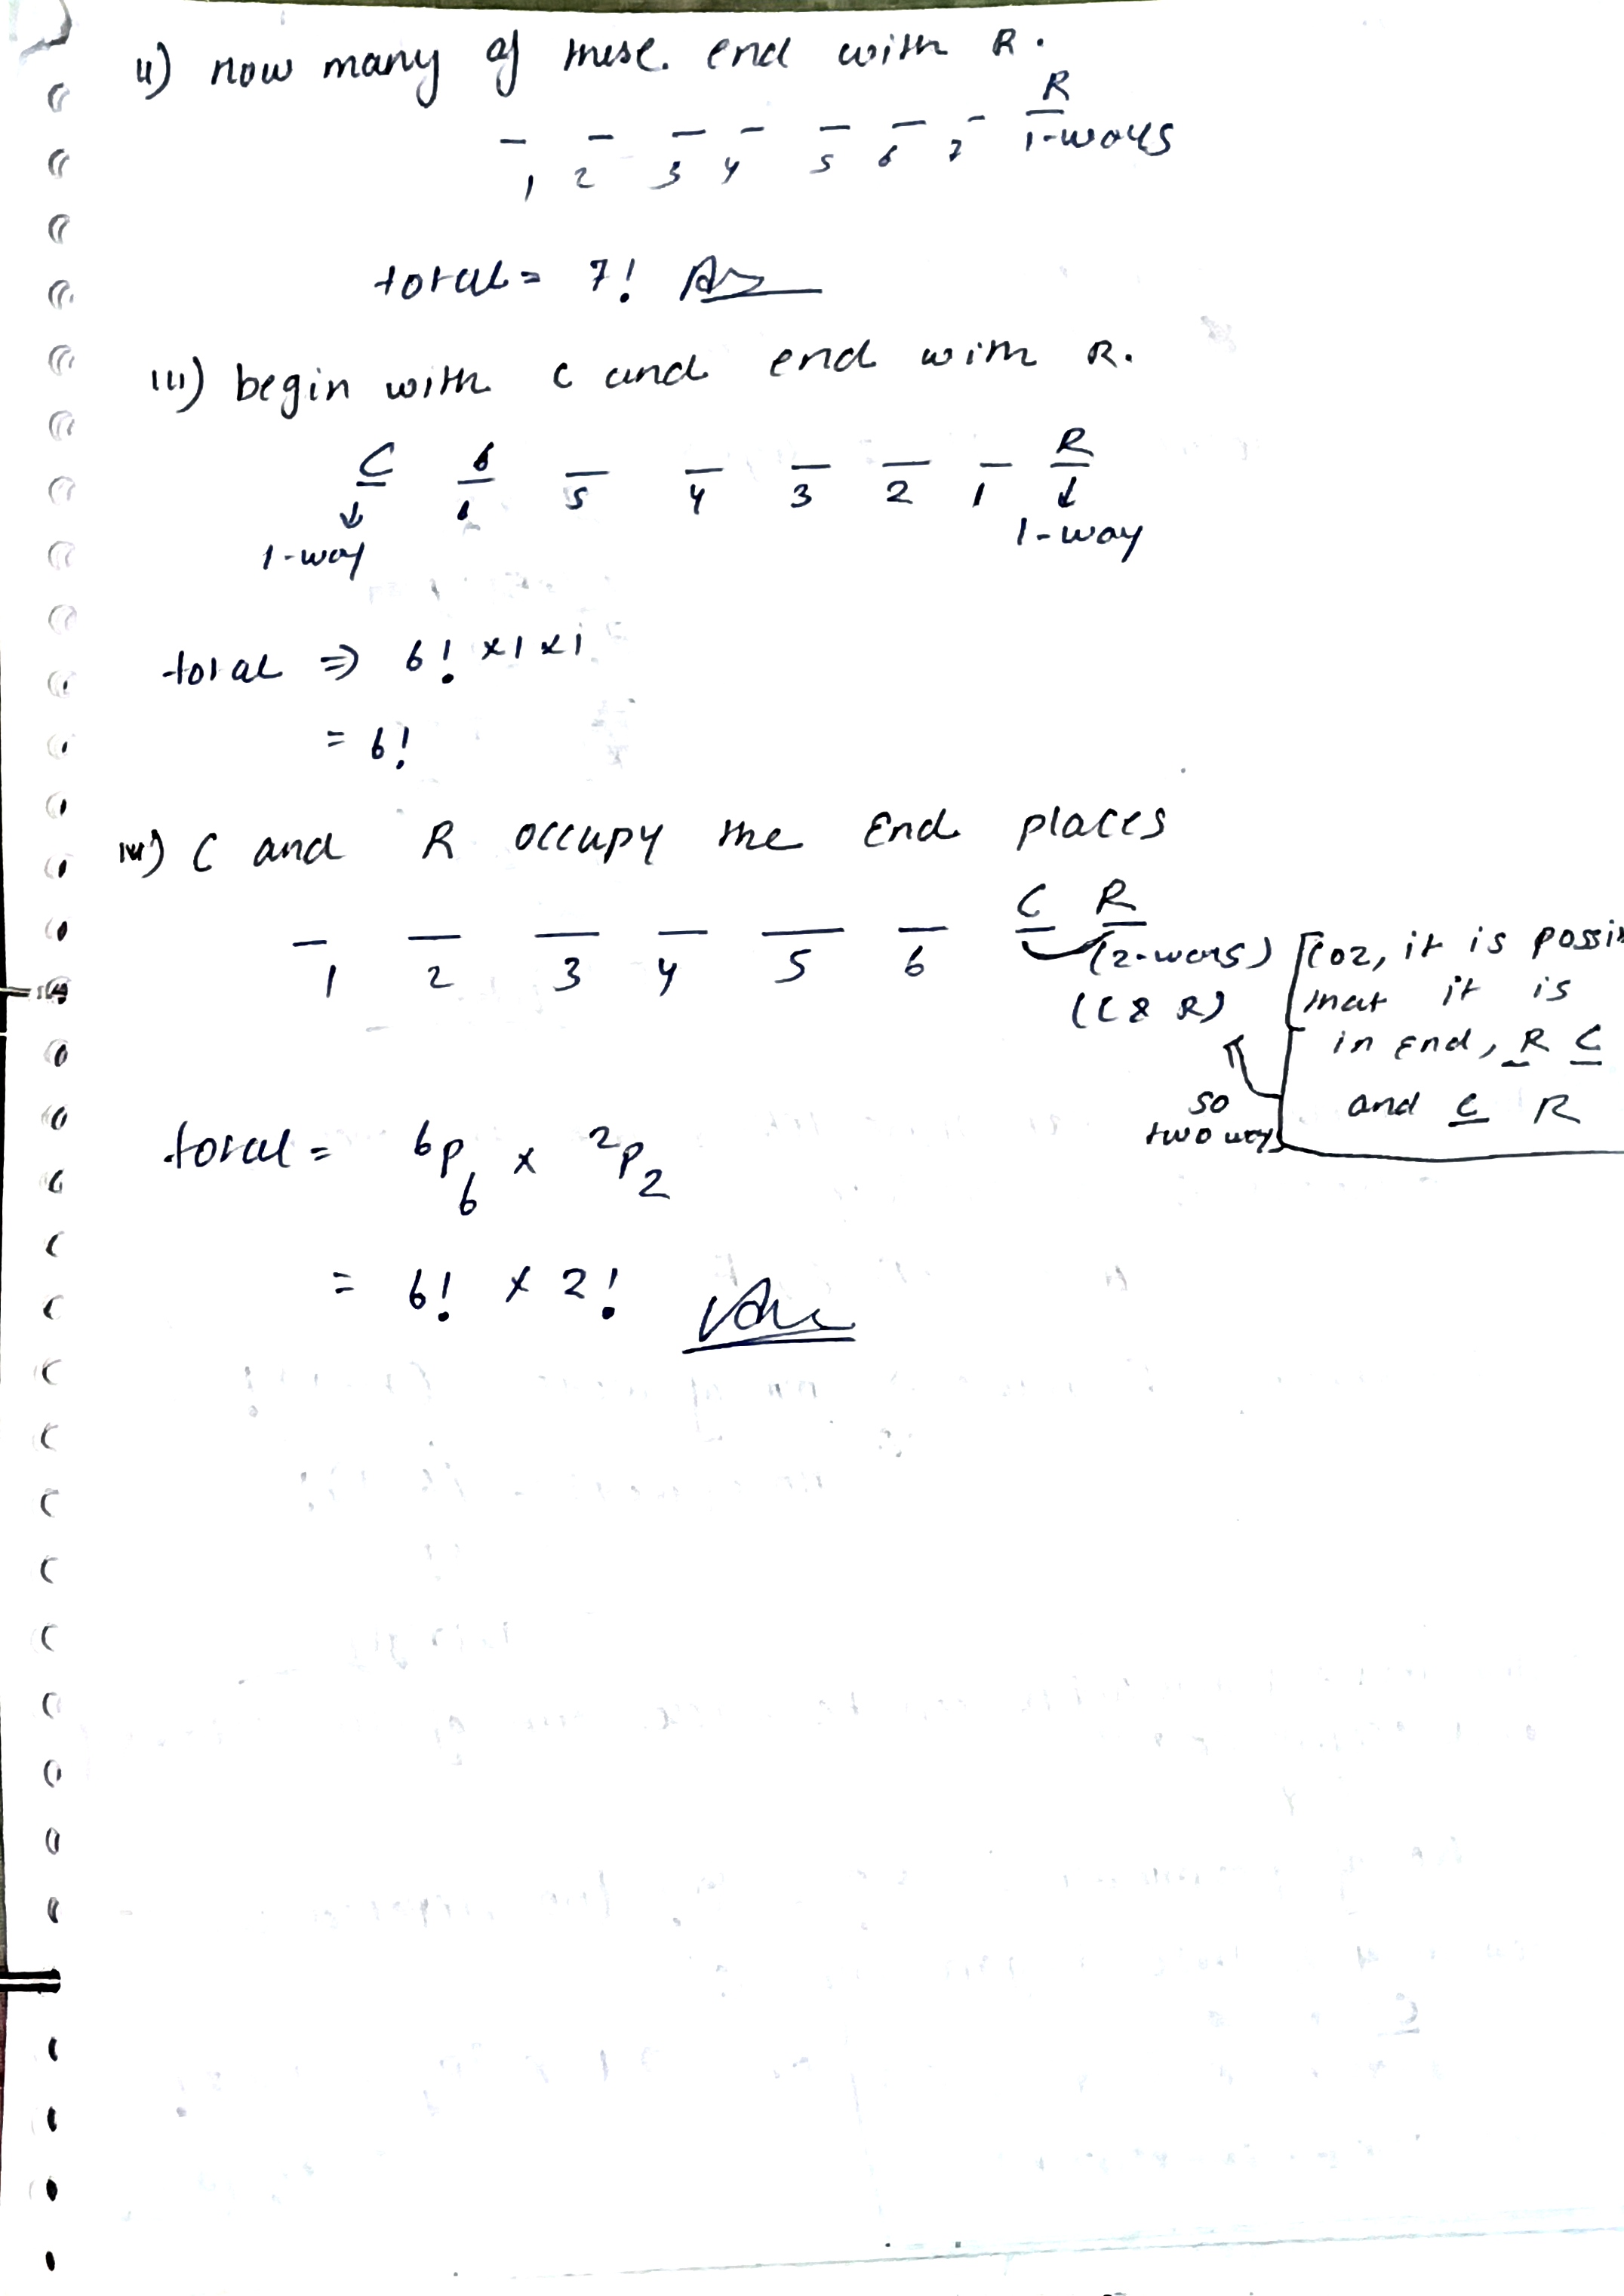 ii) how many of these. end with R.
_ _ _ _ _ _ _ R
1 2 3 4 5 6 7 1-ways
total = 7! Ans
iii) begin with C and end with R.
C 6 _ _ _ _ _ R
1 5 4 3 2 1 ↓
↓ 1-way
1-way
total ⇒ 6! ×1×1
= 6!
iv) C and R occupy the End places
_ _ _ _ _ _ C R
1 2 3 4 5 6 (2-ways)
(C & R)
[coz, it is
that it is
in end, R C
and C R
so
two ways
total = 6p6 × 2p2
= 6! × 2! Ans